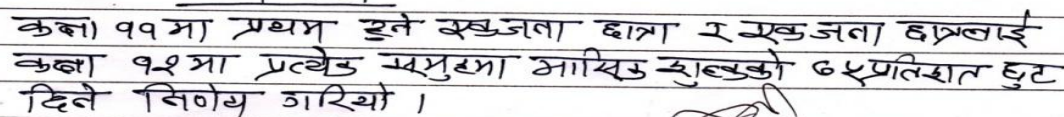 कक्षा ११मा प्रथम हुने एकजना छात्रा र एकजना छात्रलाई
कक्षा १२मा प्रत्येक समुहमा मासिक शुल्कको ७५प्रतिशत छुट
दिने निर्णय गरियो ।